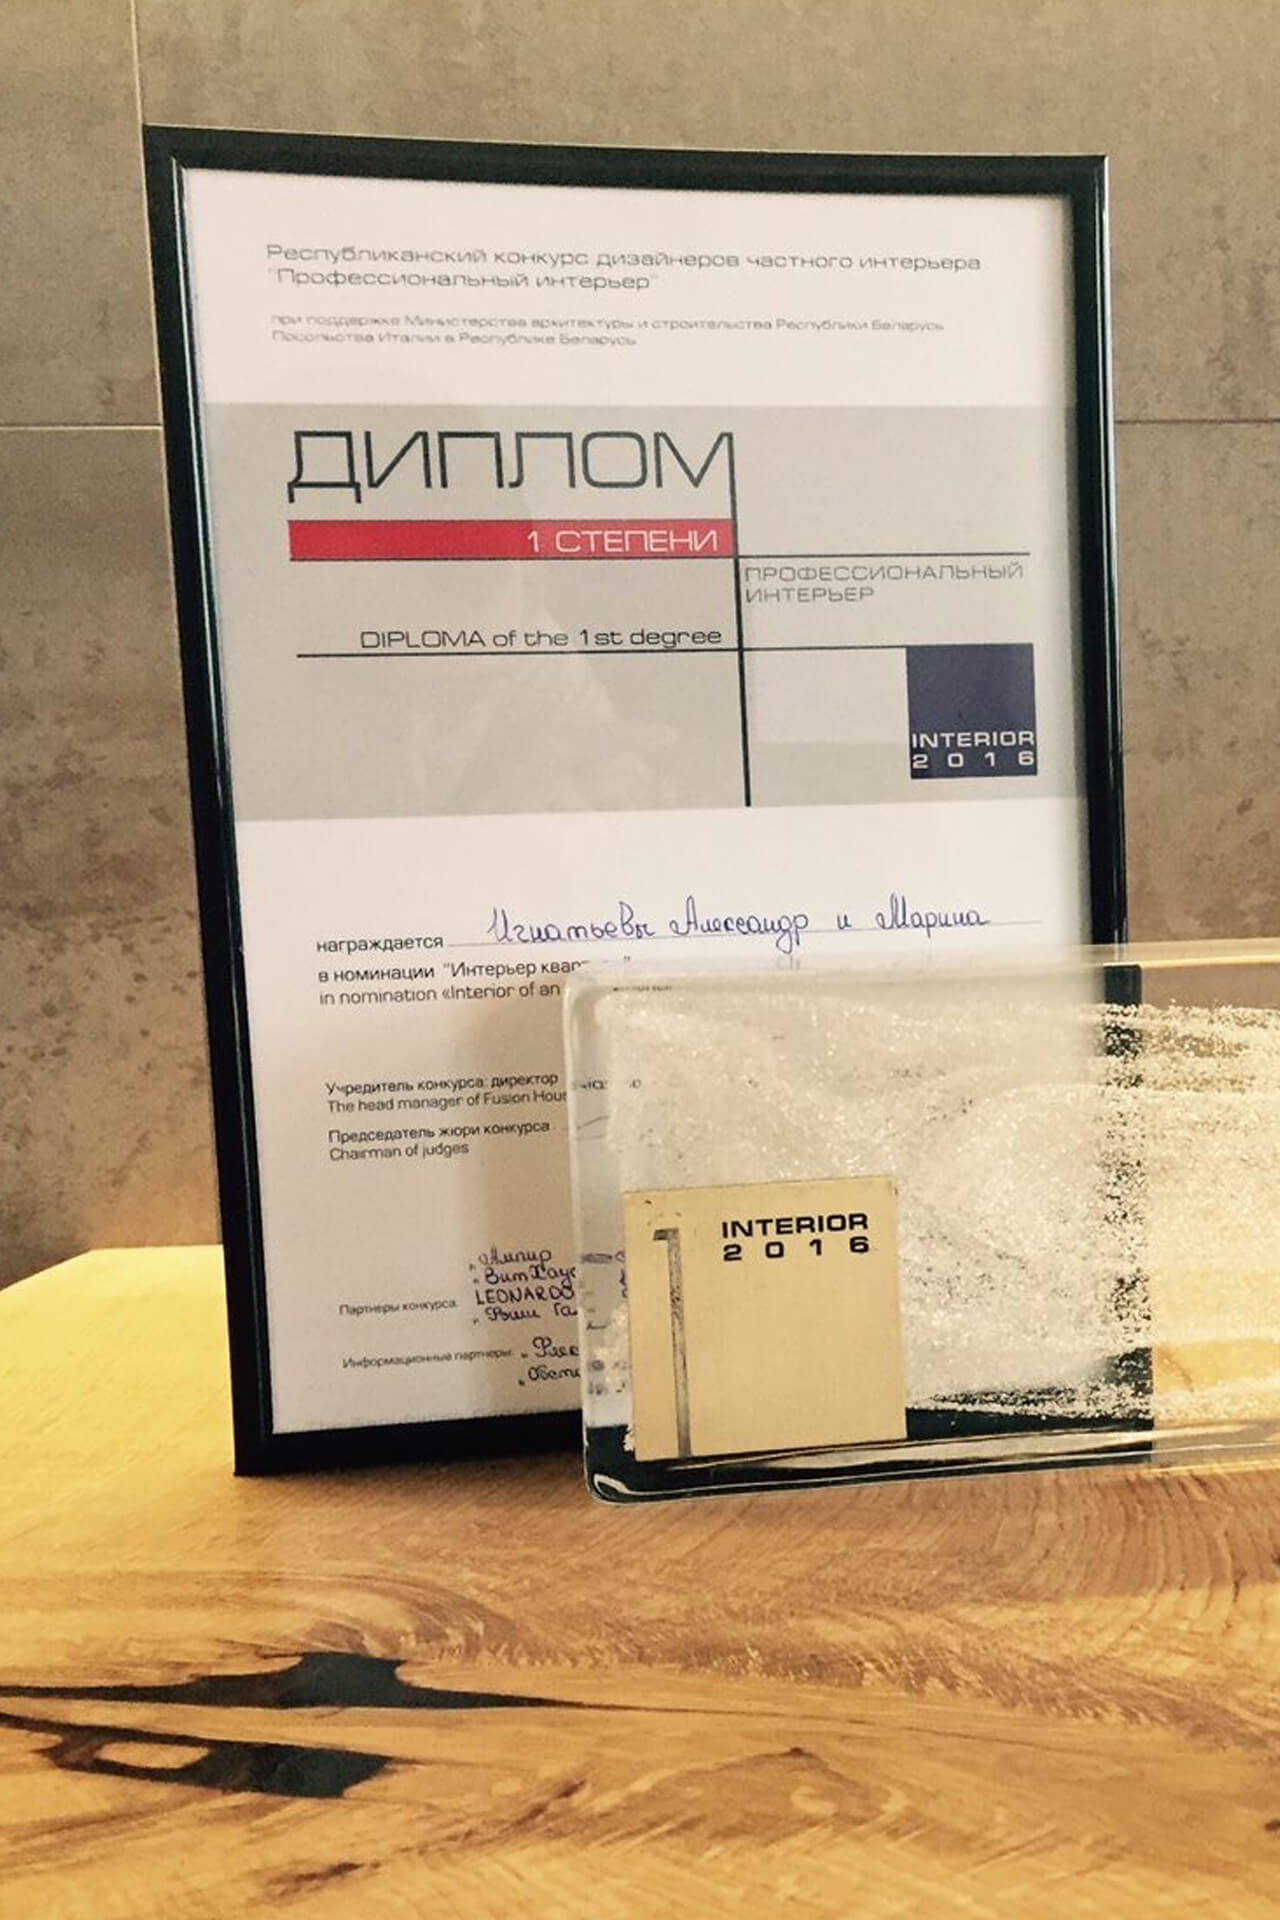 Республиканский конкурс дизайнеров частного интерьера
"Профессиональный интерьер"
при поддержке Министерства архитектуры и строительства Республики Беларусь
Посольства Италии в Республике Беларусь
ДИПЛОМ
1 СТЕПЕНИ
ПРОФЕССИОНАЛЬНЫЙ
ИНТЕРЬЕР
DIPLOMA of the 1st degree
INTERIOR
2016
награждается Игнатьевы Александр и Марина
в номинации "Интерьер
in nomination «Interior of an
Учредитель конкурса: директор
The head manager of Fusion
Председатель жюри конкурса
Chairman of judges
"Ампир
LEONARDO
Партнеры конкурса:
Информационные партнеры:
1
INTERIOR
2016